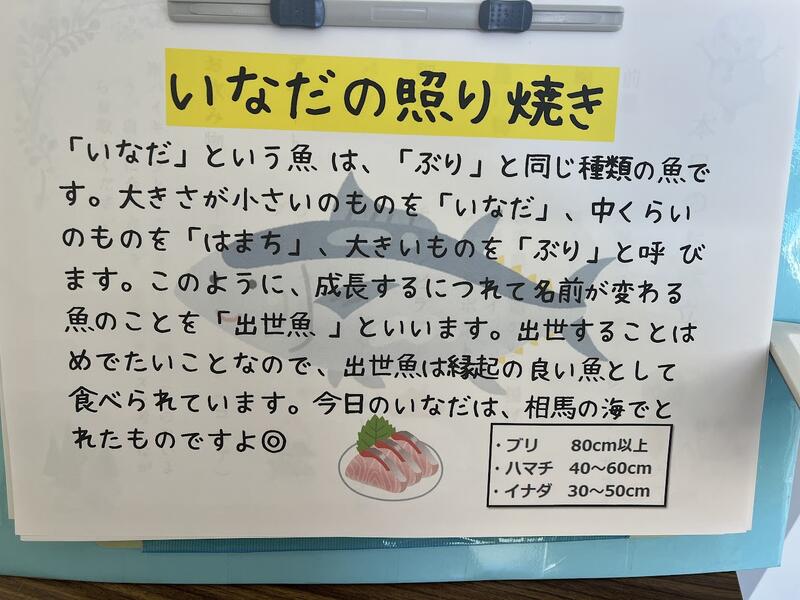 いなだの照り焼き
「いなだ」という魚 は、「ぶり」と同じ種類の魚で
す。大きさが小さいのものを「いなだ」、中くらい
のものを「はまち」、大きいものを「ぶり」と呼 び
ます。このように、成長するにつれて名前が変わる
魚のことを「出世魚 」といいます。出世することは
めでたいことなので、出世魚は縁起の良い魚として
食べられています。今日のいなだは、相馬の海でと
れたものですよ◎
・ブリ 80cm以上
・ハマチ 40～60cm
・イナダ 30～50cm